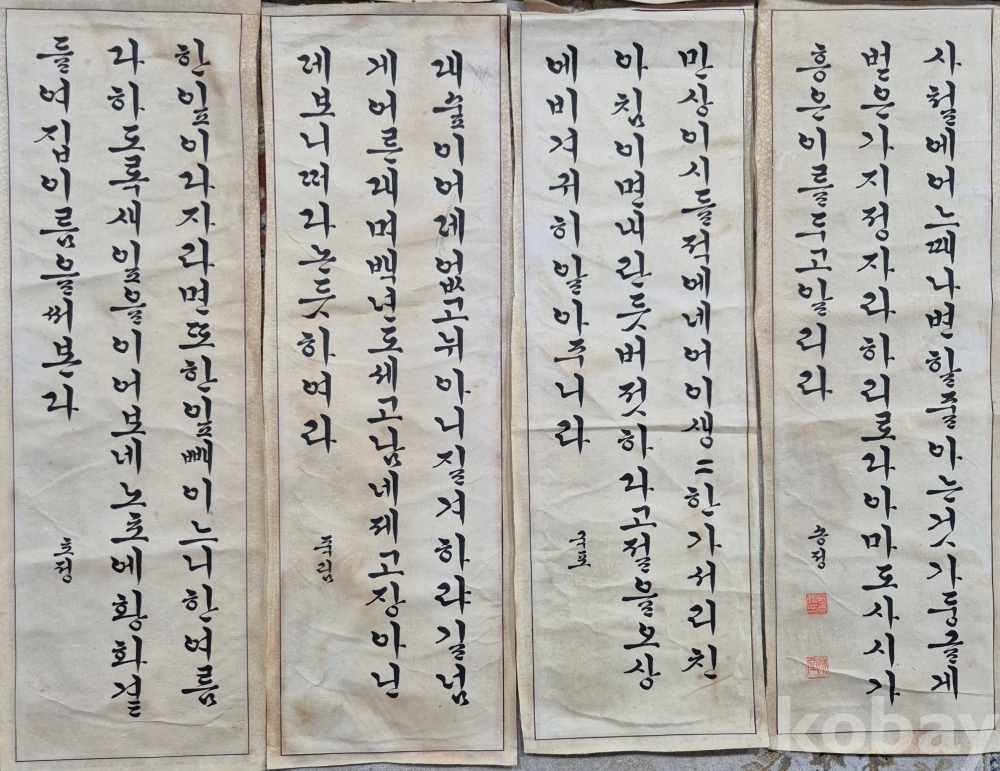 사철에어느때나변할줄아는것가둥글게
벋은가지정자라하리로라아마도사시가
흥은이를두고알리라
송정
만상이시들적에네어이생〃한가서리친
아침이면내란듯버젓하라고절을오상
에비겨귀히알아주니라
국포
대숲이어데없고뉘아니질겨하랴길넘
게어른대며백년도세고남네제고장아닌
데보니떠라는듯하여라
죽림
한잎이라자라면또한잎빼이느니한여름
라하도록새잎을이어보네노초에황화곁
들여집이름을써본라
초정
kobay